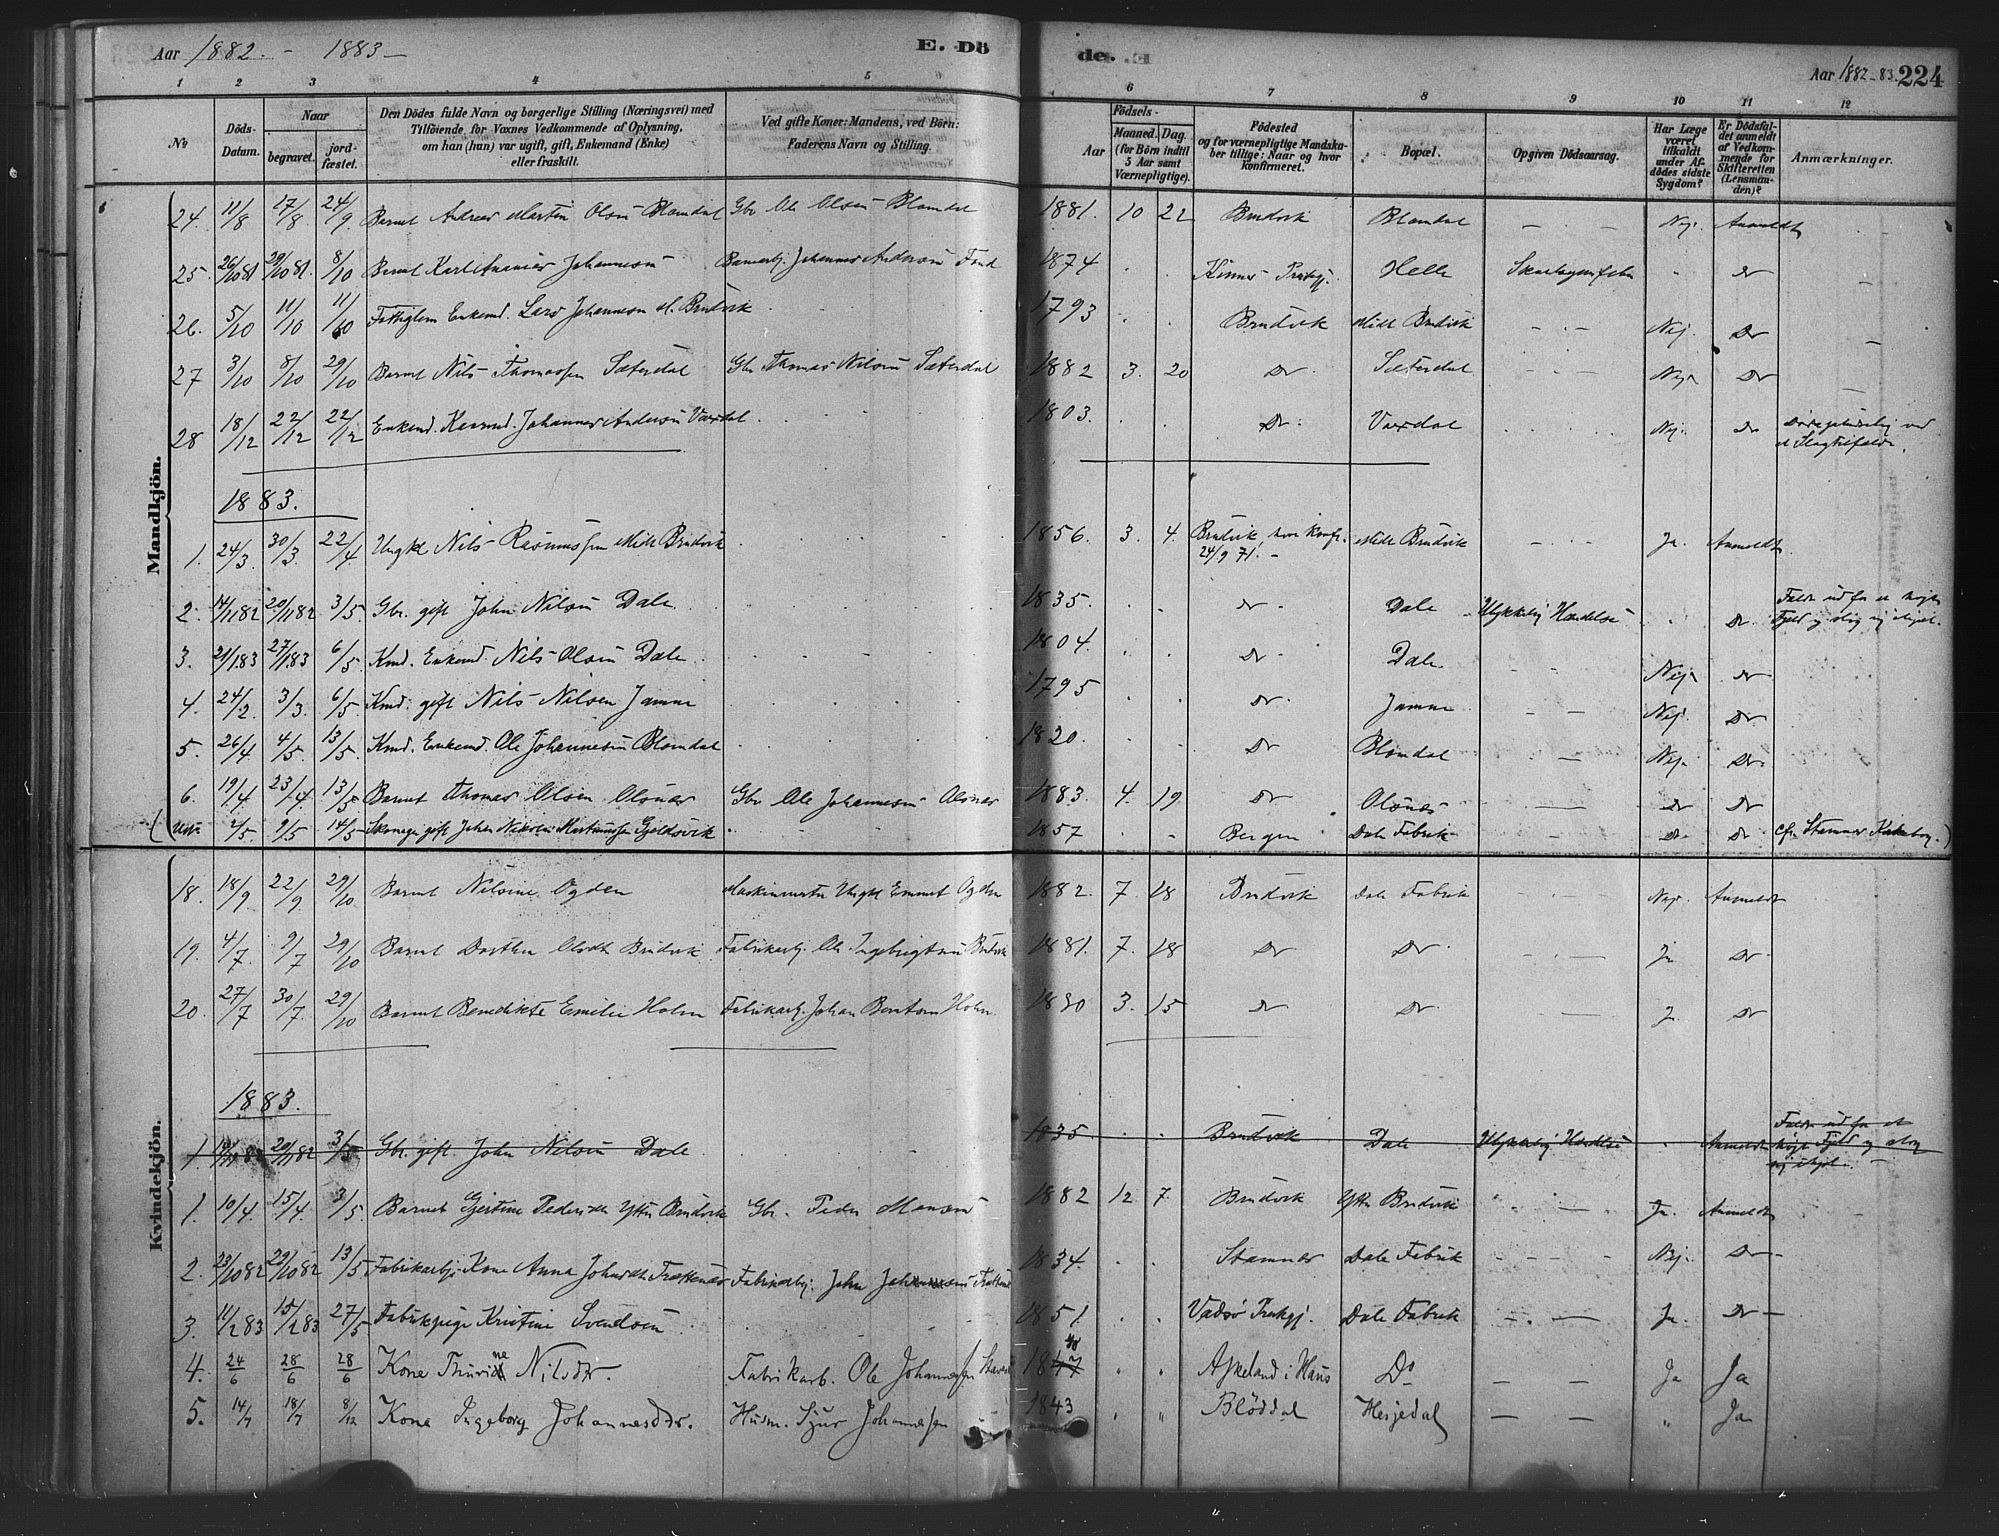 Aar 1882 - 1883 -
E. Dö
de.
Aar 1882-83. 224
1 2 3 4 5 6 7 8 9 10 11 12
No
Döds-Datum.
Naar
begravet.
jord-fæstet.
Den Dödes fulde Navn og borgerlige Stilling (Næringsvei) med
Tilföiende for Voxnes Vedkommende af Oplysning,
om han (hun) var ugift, gift, Enkemand (Enke)
eller fraskilt.
Ved gifte Koner: Mandens, ved Börn:
Faderens Navn og Stilling.
Födsels-
Aar
Maaned. Dag.
(for Börn indtil
5 Aar samt
Værnepligtige).
Födested
og for værnepligtige Mandska-
ber tillige: Naar og hvor
konfirmeret.
Bopæl.
Opgiven Dödsaarsag.
Har Læge
været
tilkaldt
under Af-
dödes sidste
Sygdom?
Er Dödsfal-
det anmeldt
af Vedkom-
mende for
Skifteretten
(Lensman-
den)?
Anmærkninger.
Mandkjön.
24. 11/8 17/8 24/9 Barnet Andreas Martin Olsen Blomdal Gbr Ole Olsen Blomdal 1881. 10 22 Brudvik Blomdal - . - Nej. Anmeldt
25. 26/10 81 29/10 81. 8/10 Barnet Karl Ananias Johannesen Johannes Andersen 1874 . . Kinns Præstgj. Helle Skarlagensfeber " Do
26. 5/10 11/10 11/10 Fattiglem Enkemd. Lars Johannesen M. Brudvik . . 1793 . . Brudvik Midt Brudvik - . - Nej. Do
27 3/10 8/10 29/10 Barnet Nils Thomassen Sæterdal Gbr Thomas Nilsen Sæterdal 1882 3. 20 Do Sæterdal - . - Nej. Do
28 18/12 22/12 22/12 Enkemd. Kaarmd. Johannes Andersen Vaxdal . . 1803. . . Do. Vaxdal . . Nej. Do ved
et Slagtilfælde.
1883.
1. 24/3 30/3 22/4 Ungkl Nils Rasmussen Midt Brudvik . . 1856. 3. 4. Brudvik, hvor Konf. 24/9 71. - Midt Brudvik - . - Ja. Anmeldt
2. 14/11 82 20/11 82 3/5 Gbr. gift John Nilsen Dale . . 1835. . . Do. Dale Ulykkelig Hændelse . Do. Faldt ud fra et høgt
Fjeld og slog sig ihjel.
3. 21/1 83 27/1 83 6/5 Kmd. Enkemd Nils Olsen Dale . . 1804. . . Do. Dale. - - Nej. Do
4. 24/2. 3/3. 6/5 Kmd. gift Nils Nilsen Jamne . . 1795 . . Do. Jamne - - Nej. Do
5. 26/4 4/5. 13/5 Kmd. Enkemd. Ole Johannesen Blomdal . . 1820. . . Do Blomdal - - Nej. Do.
6. 19/4 23/4 13/5 Barnet Thomas Olsen Olsnes Gbr Ole Johannesen Olsnes 1883. 4. 19 Do Olsnes - - Do Do
2/5 9/5 14/5 gift Johan Martinussen . - 1857 - - Bergen Dale Fabrik - - Do. Do. cfr. Stamnes Kirkebog.)
Kvindekjön.
18. 18/9 22/9 29/10 Barnet Nilsine Ogden Maskinmester Ungkl Emmet Ogden 1882. 7. 18 Brudvik Dale Fabrik - . - Nej. Anmeldt
19. 4/7 9/7 29/10 Barnet Dorthea Olsdt Brudvik Fabrikarbj. Ole Ingebrigtsen Brudvik 1881. 7. 18 Do Do. - - Ja Do
20. 27/7 30/7. 29/10 Barnet Benedikte Emilie Holm Fabrikarbj. Johan Berntsen Holm 1880 3. 15 Do Do. - - Ja Do
1883.
1 14/11 82 20/11 82 3/5 Gbr. gift John Nilsen Dale - 1835. . . Brudvik Dale Ulykkelig Hændelse . Anmeldt Faldt ud fra et
høgt Fjeld og slog
sig ihjel. -
1. 10/4. 15/4. 3/5. Barnet Gjertine Pedersdt Yttre Brudvik Gbr. Peder Monsen 1882 12 7. Brudvik Yttre Brudvik " . - Ja. Anmeldt
2. 23/10 82 29/10 82 13/5 Fabrikarbjs Kone Anna Johnsdt Trættenæs Fabrikarbj. John Johannesen 1834. . . Stamnes Dale Fabrik - - - Nej. Do -
3. 11/2 83 15/2 83 27/5 Fabrikpige Kristine Svendsen . - 1851. . . Vadsø Præstgj. Dale Fabrik - . - Ja. Do -
4. 24/6 28/6 28/6 Kone Nilsdtr. Fabrikarb. Ole Johannessen 1847 " " Askeland i Haus Do - - Ja Ja
5. 14/7 18/7 8/12 Kone Ingeborg Johannesdtr. Husm. Sjur Johannessen 1843 " " Bløddal Hesjedal - - " Ja